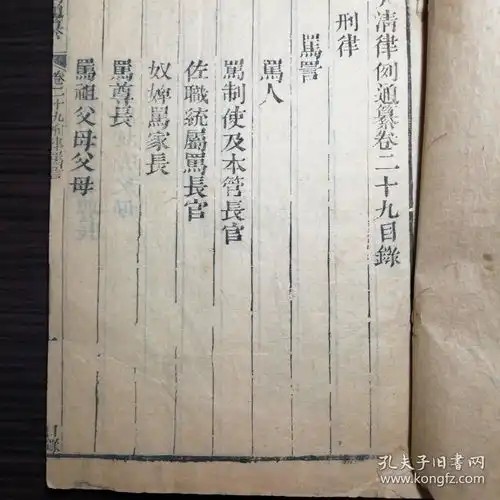 清律例通纂卷二十九目錄
刑律
罵詈
罵人
罵制使及本管長官
佐職統屬罵長官
奴婢罵家長
罵尊長
罵祖父母父母
卷二十九刑律罵詈
一
目錄
孔夫子旧书网
www.kongfz.com